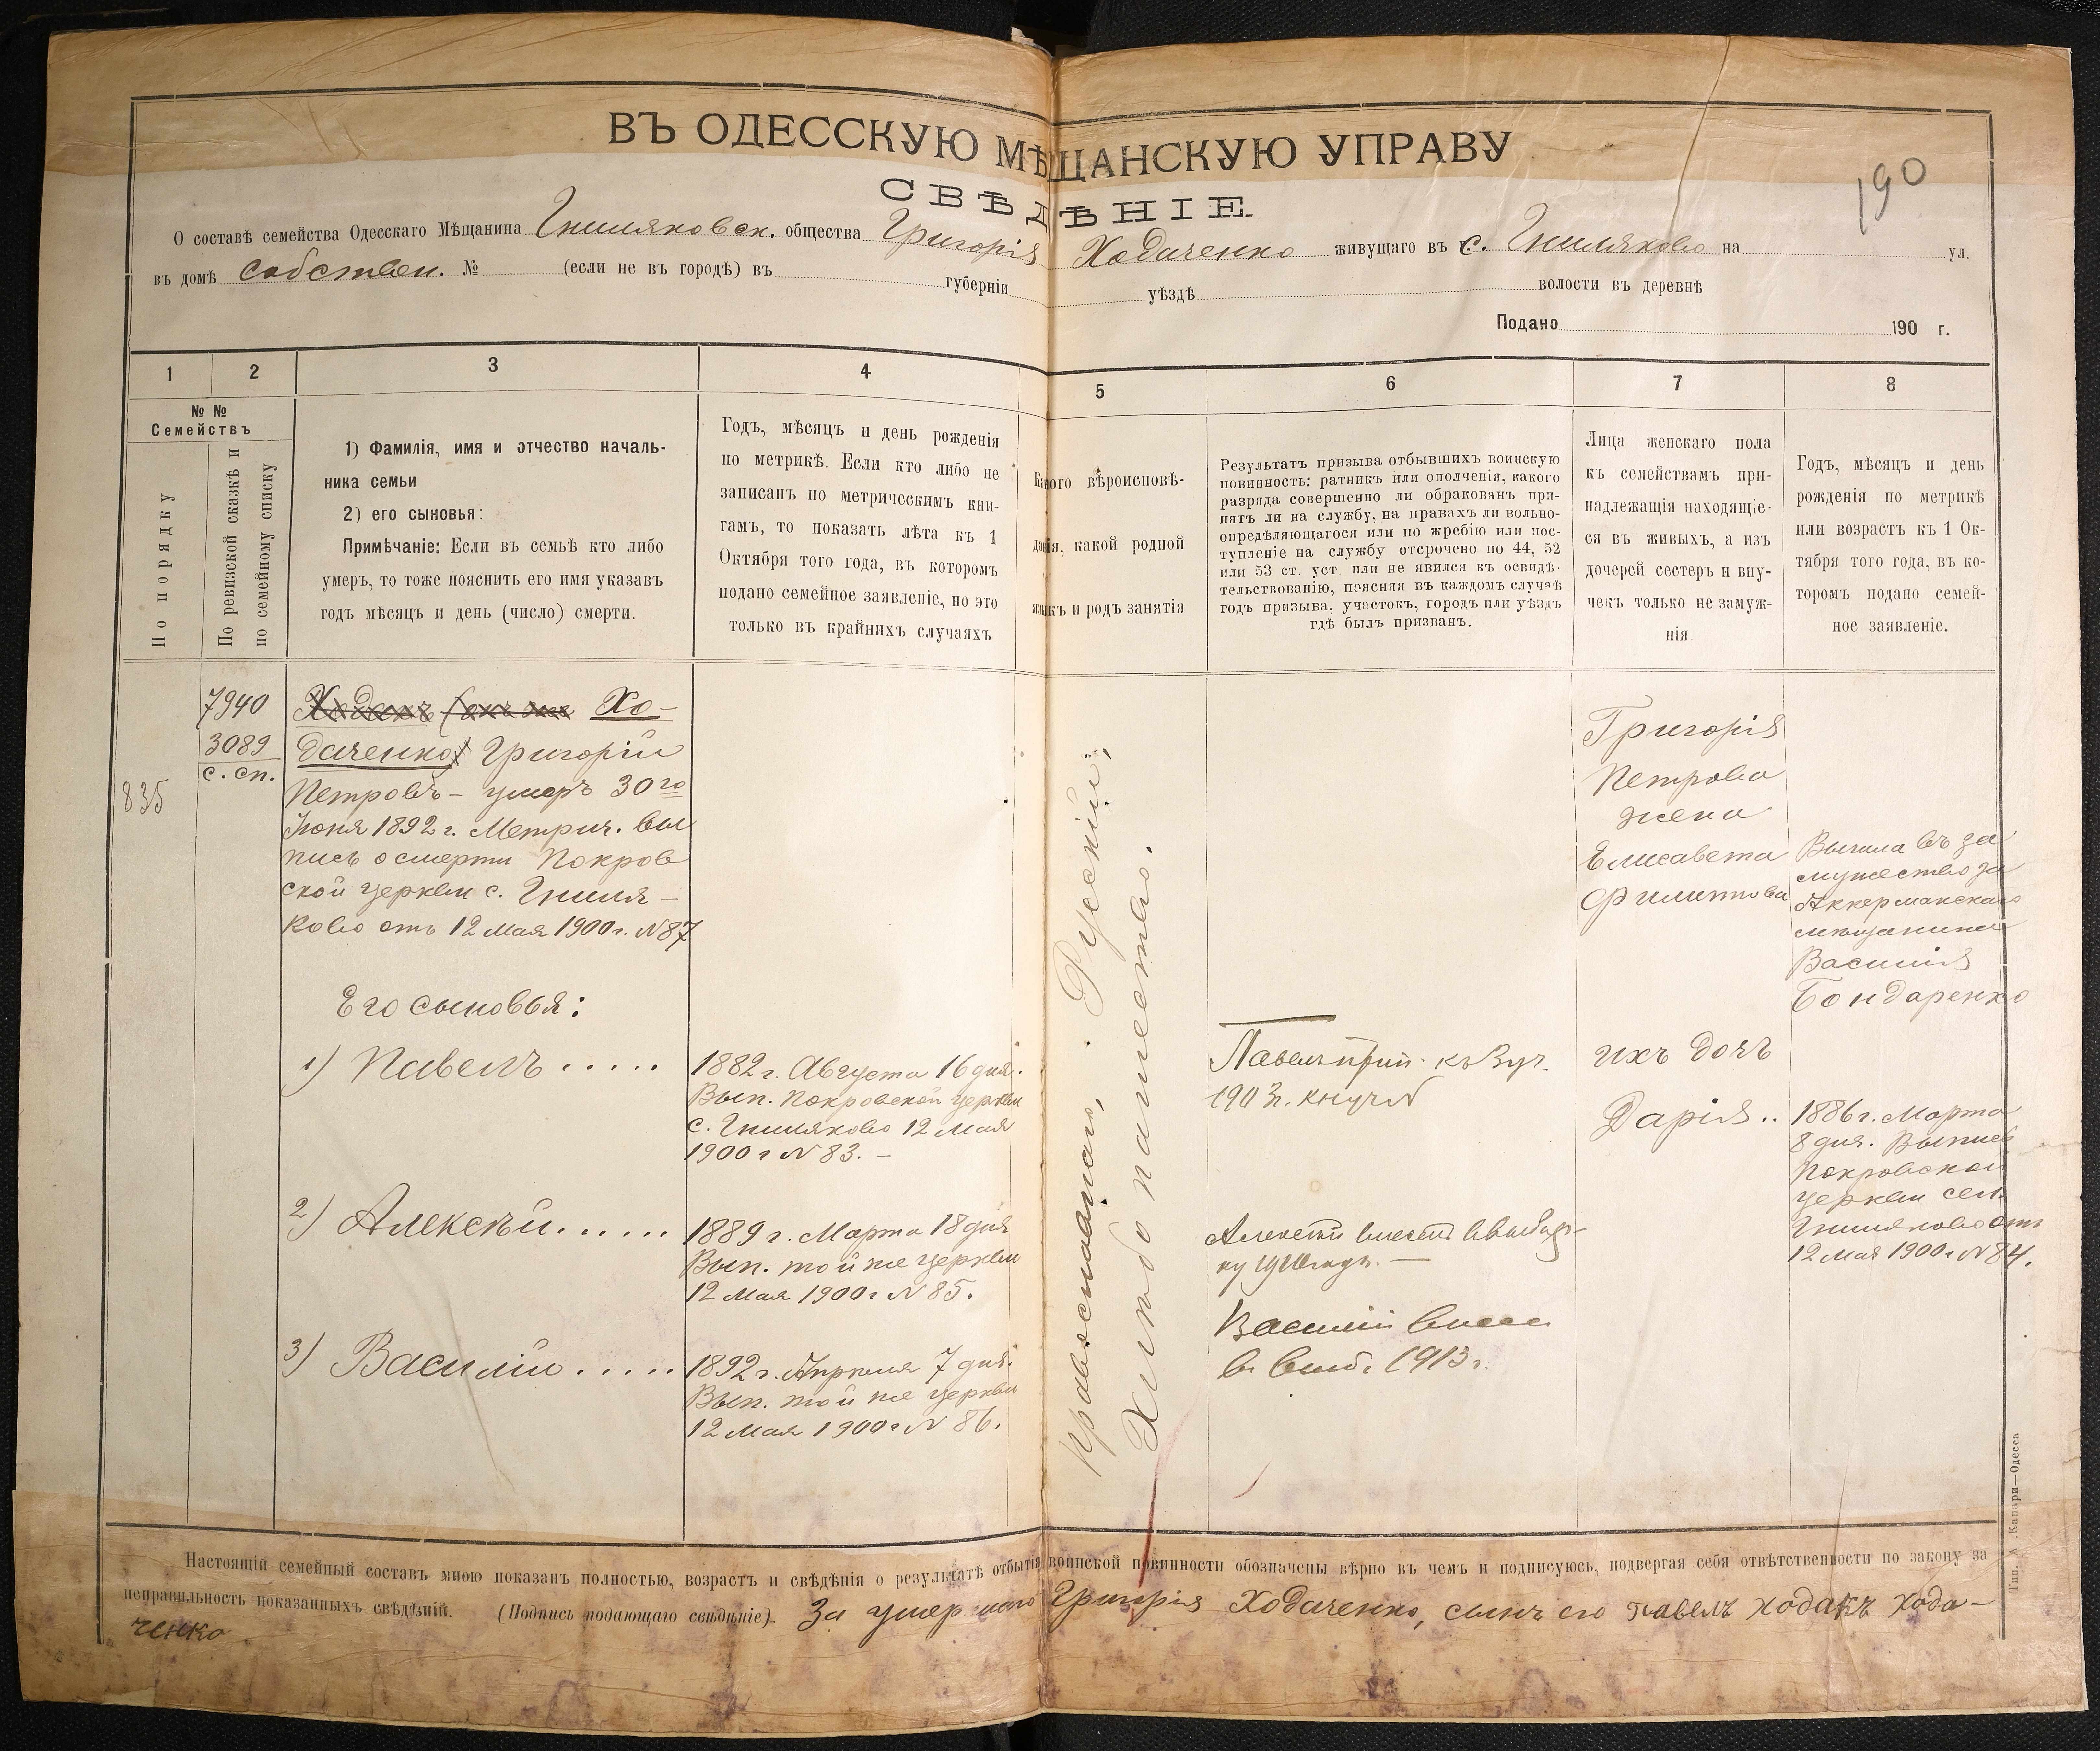 ВЪ ОДЕССКУЮ МѢЩАНСКУЮ УПРАВУ
СВѢДѢНІЕ
190
О составѣ семейства Одесскаго Мѣщанина Гниляковск. общества Григорія Ходаченко живущаго въ с. Гниляково на ул.
въ домѣ собствен. № (если не въ городѣ) въ губерніи уѣздѣ волости въ деревнѣ
Подано 190 г.
1 2 3 4 5 6 7 8
№ № Семействъ
По порядку
По ревизской сказкѣ и
по семейному списку
1) Фамилія, имя и отчество началь-
ника семьи
2) его сыновья:
Примѣчаніе: Если въ семьѣ кто либо
умеръ, то тоже пояснить его имя указавъ
годъ мѣсяцъ и день (число) смерти.
Годъ, мѣсяцъ и день рожденія
по метрикѣ. Если кто либо не
записанъ по метрическимъ кни-
гамъ, то показать лѣта къ 1
Октября того года, въ которомъ
подано семейное заявленіе, но это
только въ крайнихъ случаяхъ
Какого вѣроисповѣ-
данія, какой родной
языкъ и родъ занятія
Результатъ призыва отбывшихъ воинскую
повинность: ратникъ или ополченія, какого
разряда совершенно ли обракованъ при-
нятъ ли на службу, на правахъ ли вольно-
опредѣляющагося или по жребію или пос-
тупленіе на службу отсрочено по 44, 52
или 53 ст. уст. или не явился къ освидѣ-
тельствованію, поясняя въ каждомъ случаѣ
годъ призыва, участокъ, городъ или уѣздъ
гдѣ былъ призванъ.
Лица женскаго пола
къ семействамъ при-
надлежащія находящіе-
ся въ живыхъ, а изъ
дочерей сестеръ и вну-
чекъ только не замуж-
нія.
Годъ, мѣсяцъ и день
рожденія по метрикѣ
или возрастъ къ 1 Ок-
тября того года, въ ко-
торомъ подано семей-
ное заявленіе.
835
7940
3089
с. сп.
Ходакъ (онъ же Хо-
даченко) Григорій
Петровъ - умеръ 30го
Іюня 1892 г. Метрич. вы
пись о смерти Покров
ской церкви с. Гниля-
ково отъ 12 Мая 1900 г. N 87
Его сыновья:
1) Павелъ .....
1882 г. Августа 16 дня.
Вып. Покровской церкви
с. Гниляково 12 Мая
1900 г N 83. -
2) Алексѣй ......
1889 г. Марта 18 дня
Вып. той же церкви
12 Мая 1900 г N 85.
3) Василій .....
1892 г. Апреля 7 дня.
Вып. той же церкви
12 Мая 1900 г N 86.
Православнаго, Русскій;
Хлѣбопашество.
Павелъ къ
1903 г.
Алексѣй
Василій
1913 г.
Григорія
Петрова
жена
Елисавета
Филиппова
Вышла въ за
мужество за
Аккерманскаго
мѣщанина
Василія
Бондаренко
ихъ дочь
Дарія ..
1886 г. Марта
8 дня. Выпись
Покровской
церкви сел.
Гниляково отъ
12 Мая 1900 г N 84.
Настоящій семейный составъ мною показанъ полностью, возрастъ и свѣдѣнія о результатѣ отбытія воинской повинности обозначены вѣрно въ чемъ и подписуюсь, подвергая себя отвѣтственности по закону за
неправильность показанныхъ свѣдѣній. (Подпись подающаго свидиніе). За умершаго Григорія Ходаченко, сынъ его павелъ ходакъ хода-
ченко
Тип. А Капари—Одесса